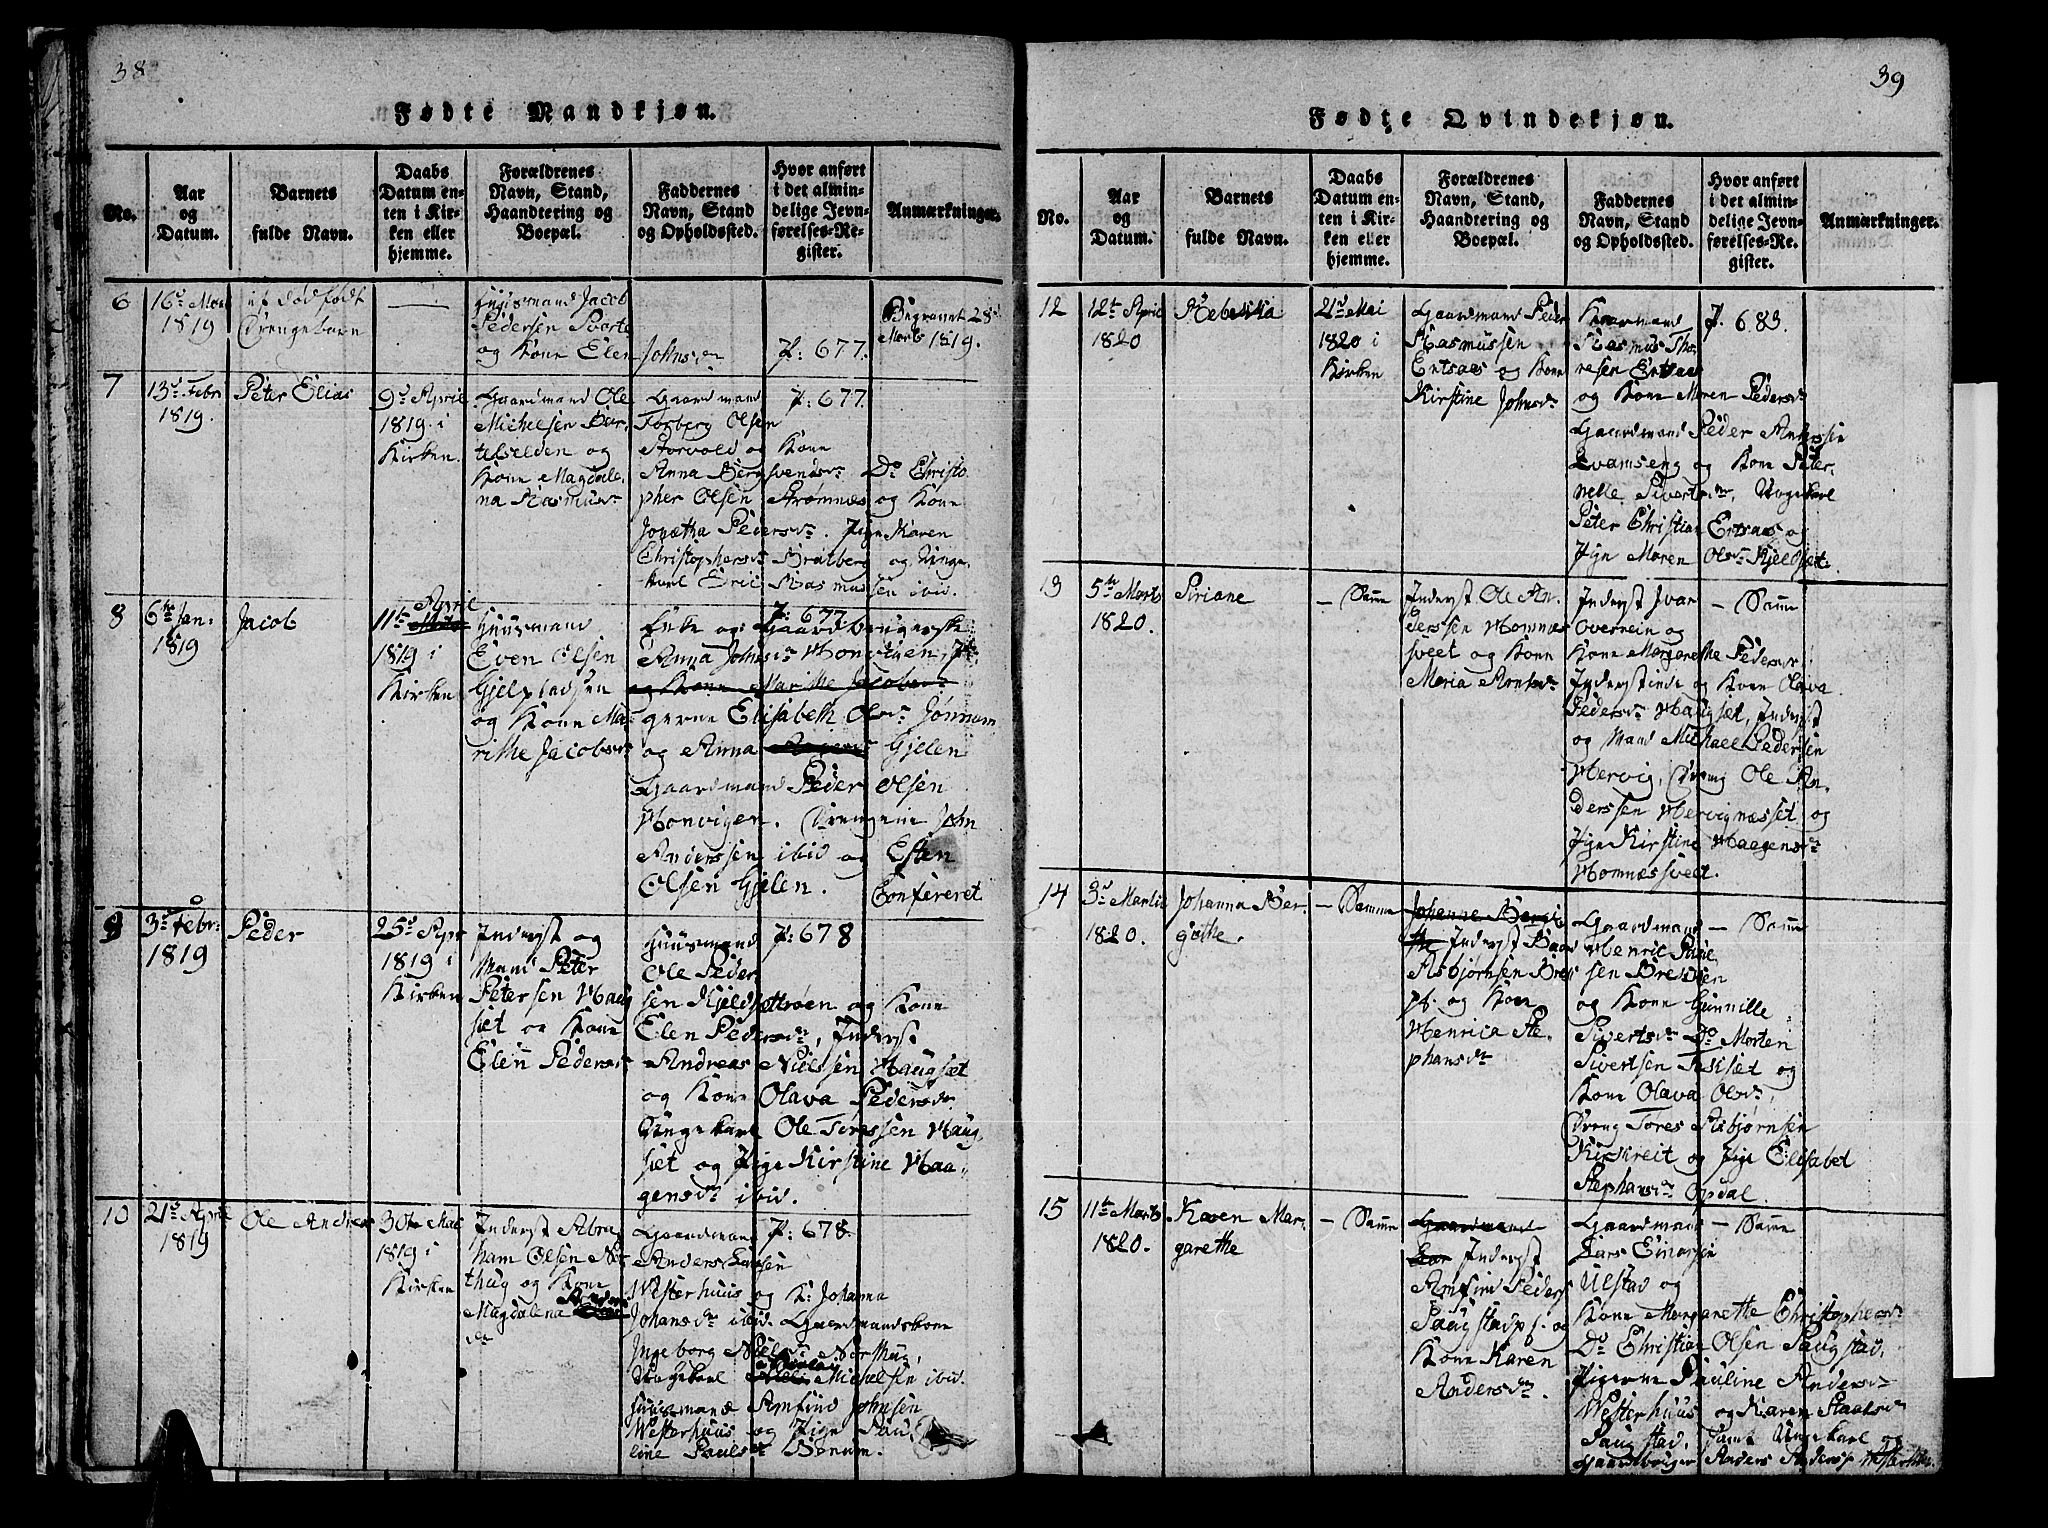 38
Fødte Mandkjøn.
No.
Aar
og
Datum.
Barnets
fulde Navn.
Daabs
Datum en-
ten i Kir-
ken eller
hjemme.
Forældrenes
Navn, Stand,
Haandtering og
Boepæl.
Faddernes
Navn, Stand
og Opholdssted.
Hvor anført
i det almin-
delige Jevn-
førelses-Re-
gister.
Anmærkninger.
6
16d Marts
1819
et dødfødt
Drengebarn
Huusmand Jacob
Pedersen Svarte
og Kone Elen Johnsdr
P: 677.
Begravet 28d
Marts 1819.
7
13d Febr
1819.
Peter Elias
9d April
1819 i
Kirken.
Gaardmand Ole
Michelsen
og
Kone Magdale-
na Rasmusdr
Gaardmand
Torberg Olsen
Aarvold og Kone
Anna Bergsvendsdr Do Christo
pher Olsen Strømnæs og Kone
Jonetha Pedersdr. Pige Karen
Christophersdr Bratberg og Unge-
karl Eric Rasmussen ibid.
P: 677
8
6te Jan:
1819
Jacob
11te April
1819 i
Kirken
Huusmand
Even Olsen
Gjelpladsen
og Kone Ma-
rithe Jacobsdr
P: 677
Enke og Gaardbrugerske
Anna Johnsdr Honvigen, Pi-
og Kone Marithe Jacobsdr
gerne Elisabeth Olsdr Jønnum
og Anna Gjelen
Gaardmand Peder Olsen
Honvigen. Drengene John
Anderssen ibid og Esten
Olsen Gjelen. Confireret
9
3d Febr:
1819
Peder
25d Apr
1819 i
Kirken
Inderst og
Mand Peter
Petersen Haug
sæt og Kone
Elen Pedersdr
Huusmand
Ole Peder
sen Kjeldsættrøen og Kone
Elen Pedersdr, Inderst
Andreas Nielssen Haugsæt
og Kone Olava Pedersdr
Ungekarl Ole Toressen Haug-
sæt og Pige Kirstine Haa-
gensdr ibid.
P: 678
10
21d April
1819
Ole Andreas
30te Mai
1819 i
Kirken
Inderst Abra-
ham Olsen Nør
thug og Kone
Magdalena
dr
Gaardmand
Anders Larsen
Westerhuus og K: Johanna
Johansdr ibid. Gaardmandskone
Ingeborg Nielsdr Nørthug,
Ungekarl Michelsen ibid.
Huusmand Amfind Johnsen
Westerhuus og Pige Pau-
line Paulsdr
P: 678.
39
Fødte Qvindekjøn.
No.
Aar
og
Datum.
Barnets
fulde Navn.
Daabs
Datum en-
ten i Kir-
ken eller
hjemme.
Forældrenes
Navn, Stand,
Haandtering og
Boepæl.
Faddernes
Navn, Stand
og Opholdssted.
Hvor anført
i det almin-
delige Jevn-
førelses-Re-
gister.
Anmærkninger.
12
12te April
1820
Rebekka
21d Mai
1820 i
Kirken
Gaardmand Peder
Rasmussen
Ertsaas og Kone
Kirstine Johnsdr
Gaardmand
Rasmus Tho-
resen Ertsaas
og Kone Maren Pedersdr
Gaardmand Peder Anderssen
Qvamseng og Kone Peter-
nelle Sivertsdr, Ungekarl
Peter Christian Ertsaas og
Pige Maren Olsdr Kjeldsæt.
P. 683.
13
5te Marts
1820.
Siriane
— Samme
Inderst Ole An-
derssen Homnæs
sveet og Kone
Maria Arntsdr
Inderst Ivar
Overnein og
Kone Margarethe Pedersdr
Inderstinde og Kone Olava
Pedersdr Haugset, Inderst
og Mand Michael Pedersen
Hervig, Dreng Ole An-
derssen Hervignæsset og
Pige Kirstine Haagensdr
Homnæssveet.
— Samme
14
3d Martii
1820.
Johanna Ber-
githe.
— Samme
Johanna Bergi
the Inderst Baard
Asbjørnsen Bres
pl. og Kone
Henrica Ste-
phansdr
Gaardmand
Henric Paul-
sen Bresden
og Kone Gunnille
Sivertsdr Do Morten
Sivertsen Toskset og
Kone Olava Olsdr,
Dreng Tores Asbjørnsen
Kirkreit og Pige Elisabet
Stephansdr Opdal.
— Samme
15
11te Marts
1820.
Karen Mar-
garethe
— Samme
Gaardmand
Inderst
Amfind Peders
Saugstadpl. og
Kone Karen
Andersdr.
Gaardmand
Lars Einarsen
Ulstad og
Kone Margarethe Christophersdr
Do Christian Olsen Saugstad,
Pigerne Pauline Andersdr
Westerhuus og Karen Staalsdr
Saugstad, samt Ungekarl og
Gaardbruger Anders Anderss Westerhuus.
— Samme